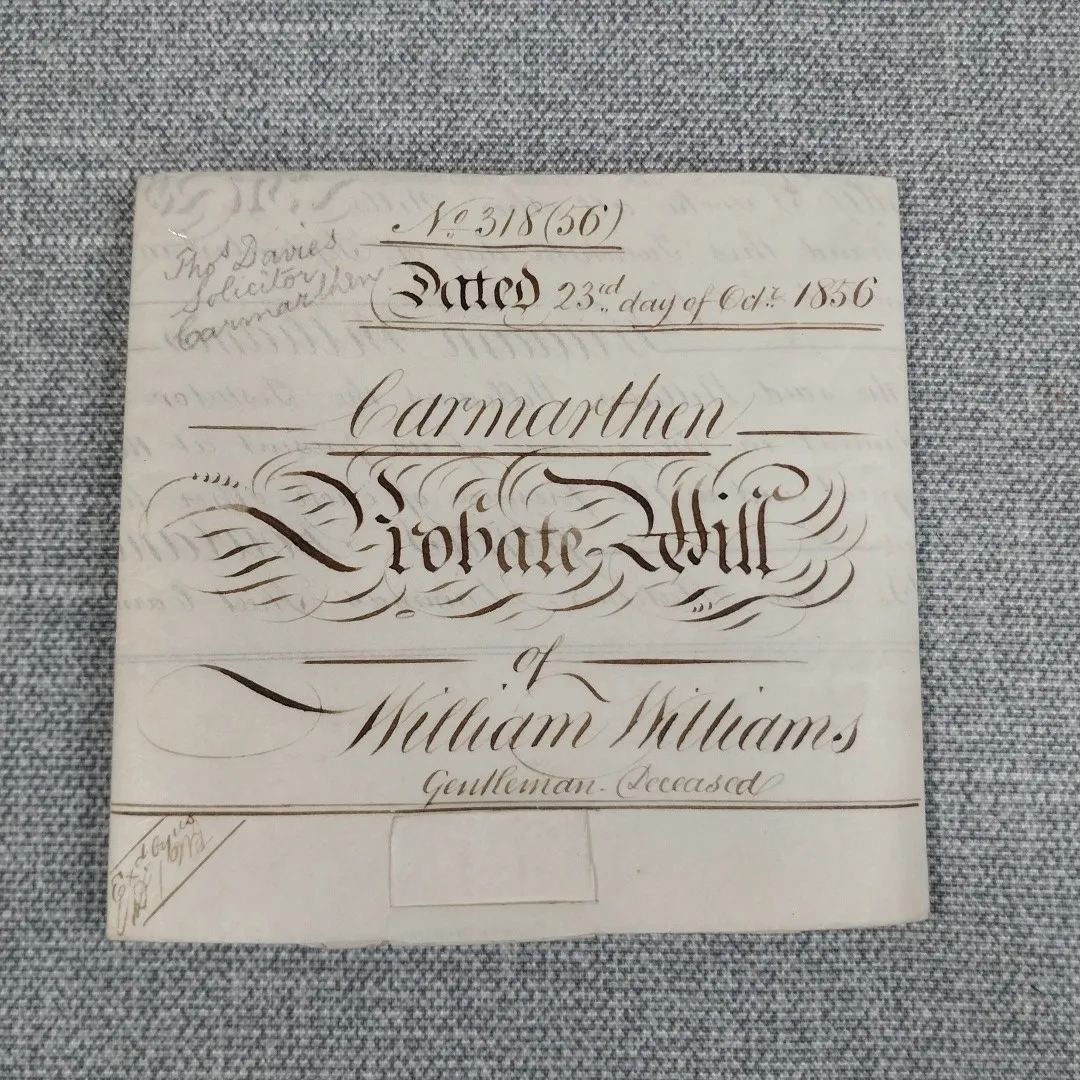 Nº 318 (56)
Thos Davies
Solicitor
Carmarthen
Dated 23rd day of Octr 1856
Carmarthen
Probate Will
of
William Williams
Gentleman Deceased